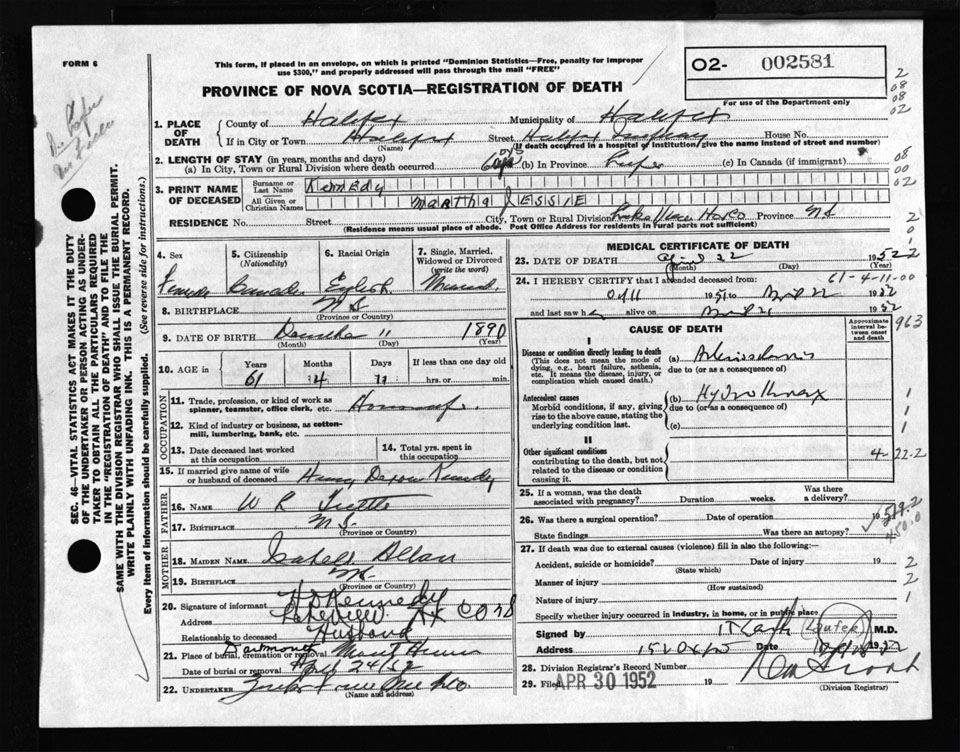 FORM 6
This form, if placed in an envelope, on which is printed "Dominion Statistics—Free, penalty for improper
use $300," and properly addressed will pass through the mail "FREE"
O2- 002581
For use of the Department only
PROVINCE OF NOVA SCOTIA—REGISTRATION OF DEATH
1. PLACE OF DEATH
County of Halifax Municipality of Halifax
If in City or Town Halifax Street Halifax Infirmary House No.
(Name) (If death occurred in a hospital or institution give the name instead of street and number)
2. LENGTH OF STAY (in years, months and days)
(a) In City, Town or Rural Division where death occurred 6 dys (b) In Province Life (c) In Canada (if immigrant)
3. PRINT NAME OF DECEASED
Surname or Last Name Kennedy
All Given or Christian Names Martha JESSIE
RESIDENCE No. Street City, Town or Rural Division Lakeview Hfx Co Province NS
(Residence means usual place of abode. Post Office Address for residents in rural parts not sufficient)
4. Sex
Female
5. Citizenship (Nationality)
Canadian
6. Racial Origin
English
7. Single, Married, Widowed or Divorced (write the word)
Married
8. BIRTHPLACE NS
(Province or Country)
9. DATE OF BIRTH December 11 1890
(Month) (Day) (Year)
10. AGE in Years Months Days If less than one day old
61 4 11 hrs. or min.
OCCUPATION
11. Trade, profession, or kind of work as spinner, teamster, office clerk, etc. Housewife
12. Kind of industry or business, as cotton-mill, lumbering, bank, etc.
13. Date deceased last worked at this occupation
14. Total yrs. spent in this occupation
15. If married give name of wife or husband of deceased Henry Kennedy
FATHER
16. Name W R Tuttle
17. Birthplace N.S.
(Province or Country)
MOTHER
18. MAIDEN NAME Isabell Allan
19. BIRTHPLACE NS
(Province or Country)
20. Signature of informant H D Kennedy
Address Lakeview Hfx Co NS
Relationship to deceased Husband
21. Place of burial, cremation or removal Dartmouth Mount Hermon
Date of burial or removal Apl 24/52
22. UNDERTAKER
(Name and address)
MEDICAL CERTIFICATE OF DEATH
23. DATE OF DEATH April 22 1952
(Month) (Day) (Year)
61-4-11-00
24. I HEREBY CERTIFY that I attended deceased from:
1951 to April 22 1952
and last saw her alive on April 21 1952
CAUSE OF DEATH
Approximate interval between onset and death
963
I
Disease or condition directly leading to death (a)
(This does not mean the mode of dying, e.g., heart failure, asthenia, etc. It means the disease, injury, or complication which caused death.)
due to (or as a consequence of)
Antecedent causes (b) Hydrothorax
Morbid conditions, if any, giving rise to the above cause, stating the underlying condition last.
due to (or as a consequence of)
(c)
II
Other significant conditions
contributing to the death, but not related to the disease or condition causing it.
4-22-2
25. If a woman, was the death associated with pregnancy? Duration weeks. Was there a delivery?
26. Was there a surgical operation? Date of operation 19
State findings Was there an autopsy?
27. If death was due to external causes (violence) fill in also the following:—
Accident, suicide or homicide? Date of injury 19
(State which)
Manner of injury
(How sustained)
Nature of injury
Specify whether injury occurred in industry, in home, or in public place
Signed by M.D.
Address Date 1952
28. Division Registrar's Record Number
29. Filed APR 30 1952 19
(Division Registrar)
SEC. 46—VITAL STATISTICS ACT MAKES IT THE DUTY
OF THE UNDERTAKER OR PERSON ACTING AS UNDER-
TAKER TO OBTAIN ALL THE PARTICULARS REQUIRED
IN THE "REGISTRATION OF DEATH" AND TO FILE THE
SAME WITH THE DIVISION REGISTRAR WHO SHALL ISSUE THE BURIAL PERMIT.
WRITE PLAINLY WITH UNFADING INK. THIS IS A PERMANENT RECORD.
Every item of information should be carefully supplied. (See reverse side for instructions.)